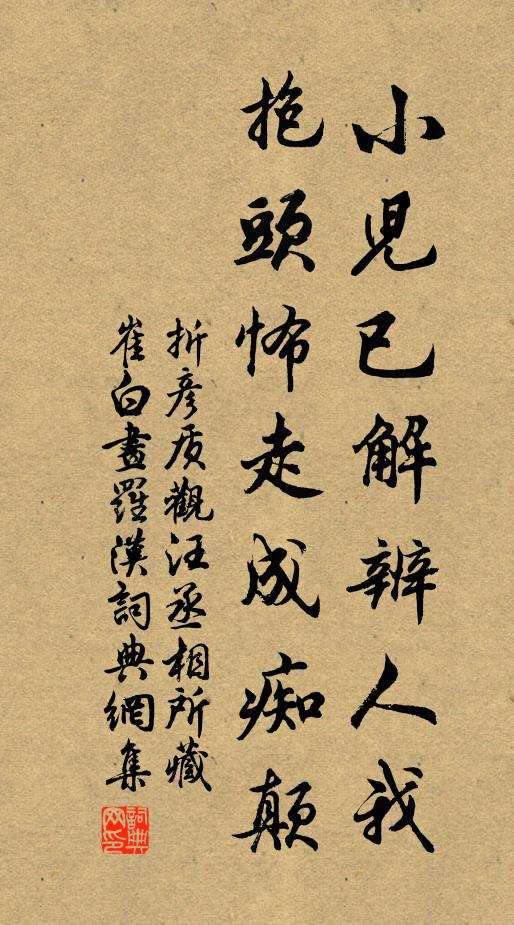 小児已解辨人我
抱頭怖走成痴顛
折彥质觀汪丞相所藏
崔白畫羅漢詞典網集
詞典網印